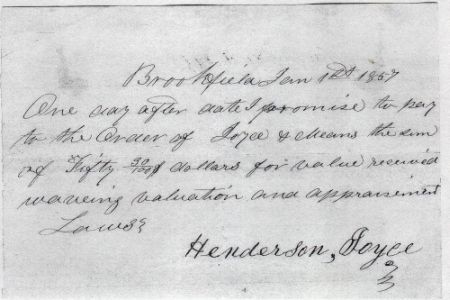 Brookfield Jan 1st 1857
One day after date I promise to pay
to the Order of Joyce & Means the sum
of Fifty 50/100 dollars for value received
waveing valuation and appraisement
Laws
Henderson, Joyce